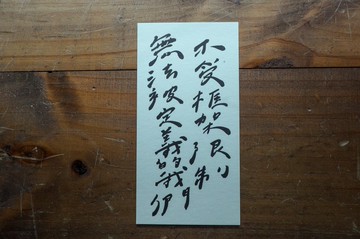 不受框架限制
無法被定義的我們